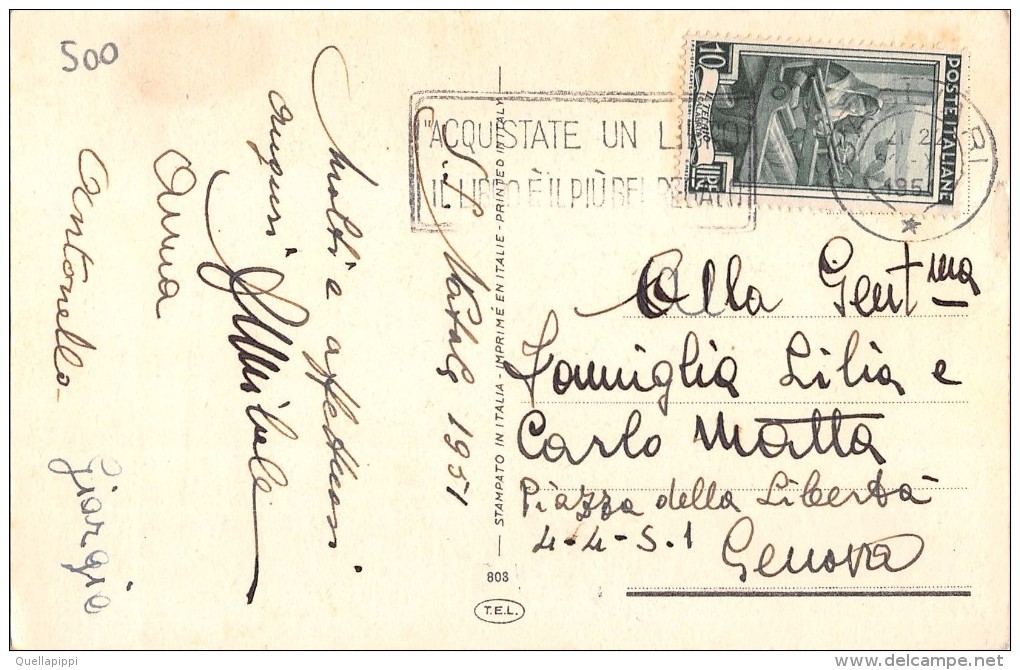 500
S. Natale 1951
Molti e affettuosi
auguri
Annibale
Anna
Antonello-
Giorgio
STAMPATO IN ITALIA - IMPRIMÉ EN ITALIE - PRINTED IN ITALY
803
T.E.L.
"ACQUISTATE UN LIBRO
IL LIBRO È IL PIÙ BEL REGALO"
10
LIRE
POSTE ITALIANE
Alla Gent.ma
Famiglia Lilia e
Carlo Matta
Piazza della Libertà
4-4-S.1
Genova
Quellapippi
delcampe.net